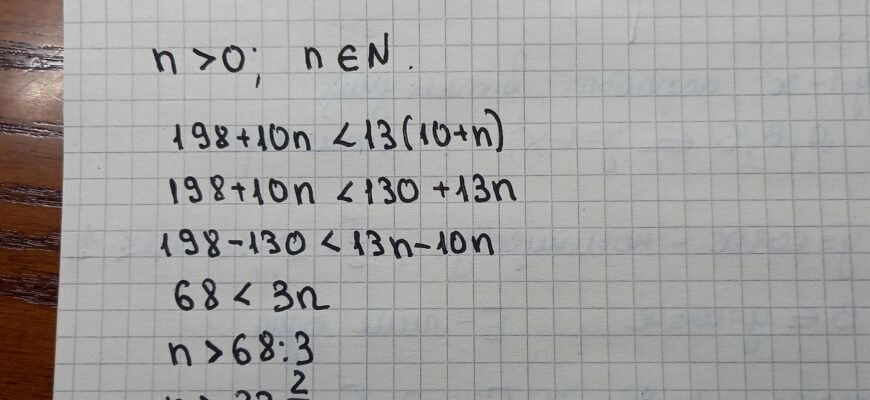 n > 0; n ∈ N.
198 + 10n < 13(10 + n)
198 + 10n < 130 + 13n
198 - 130 < 13n - 10n
68 < 3n
n > 68:3
2